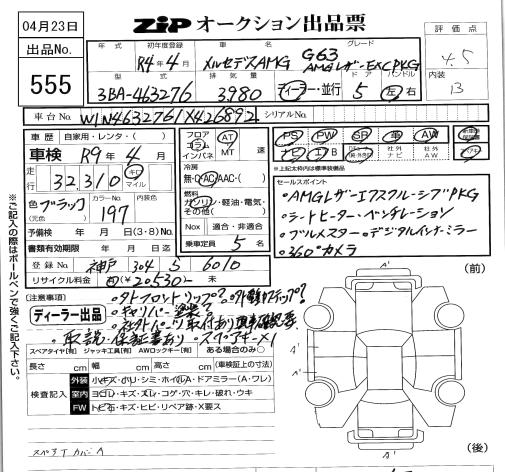 04月23日
ZIP オークション出品票
評価点
4.5
内装
B
出品No.
555
年式
初年度登録
R4年4月
車名
メルセデスAMG
グレード
G63
AMGレザーEXC PKG
型式
3BA-463276
排気量
3,980
ディーラー・並行
ドア
5
ハンドル
左 右
車台No.
W1N4632761X426892
シリアルNo.
車歴
自家用・レンタ・( )
車検 R9年4月
走行
32,310
キロ
マイル
色
(元色)
ブラック
カラーNo.
197
内装色
予備検 年 月 日(3・8)No.
書類有効期限 年 月 日迄
登録No. 神戸 304 ち 6010
リサイクル料金 有(¥20,530-) 未
フロア
コラム
インパネ
AT
MT
速
冷房
無・C・AC・AAC・( )
燃料
ガソリン・軽油・電気・
その他( )
Nox 適合・非適合
乗車定員 5名
PS
PW
SR
革
AW
ナビ
エアB
社外
ナビ
社外
AW
※上記太枠内は標準装備品
セールスポイント
・AMGレザーエクスクルーシブPKG
・シートヒーター・ベンチレーション
・ブルメスター・デジタルインナーミラー
・360°カメラ
(注意事項)
ディーラー出品
・キャリパー塗装?
・社外パーツ取付あり 現車確認要
・取説・保証書あり ・スペアキー×1
スペアタイヤ[有] ジャッキ工具[有] AWロックキー[有] ある場合のみ○
長さ cm 幅 cm 高さ cm (車検証上の寸法)
検査記入
外装 小キズ・ハリ・シミ・ホイルA・ドアミラー(A・ワレ)
室内 ヨゴレ・キズ・スレ・コゲ・穴・キレ・破れ・ウキ
FW トビ石・キズ・ヒビ・リペア跡・X要ス
スペアTカバーA
(前)
A'
A'
(後)
※ご記入の際はボールペンで強くご記入下さい。